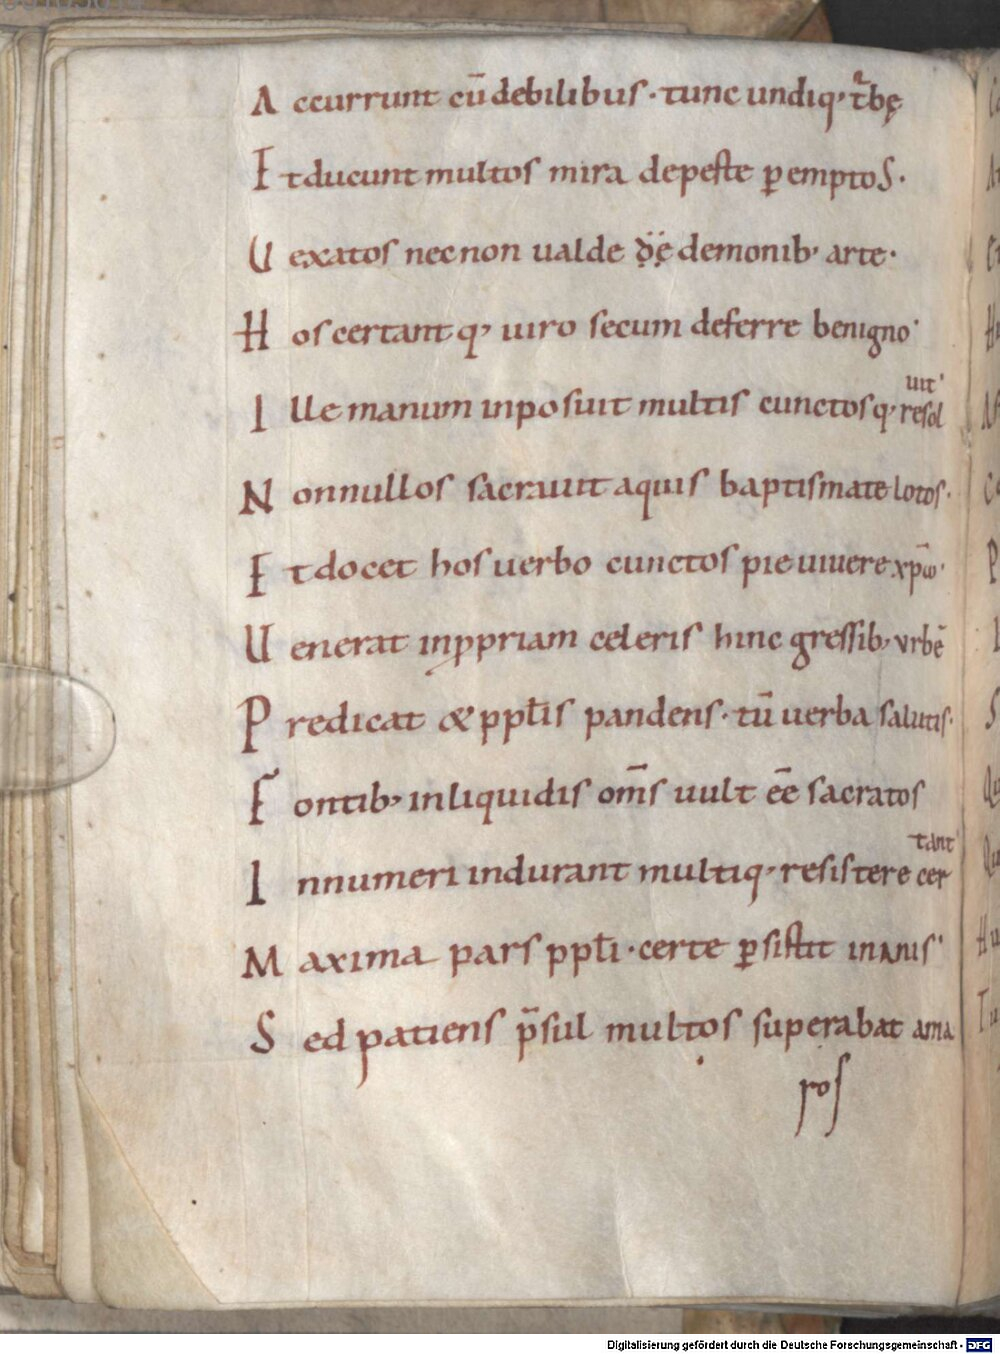 A ccurrunt cū debilibus · tunc undiq; t̄bę
E t ducunt multos mira de peste p̱emptoS·
U exatos necnon ualde dę demonib; arte·
H os certant q; uiro secum deferre benigno·
I lle manum inposuit multis cunctosq; resol
uit·
N onnullos sacrauit aquis baptismate lotos·
E t docet hos uerbo cunctos pie uiuere xp̄ω·
U enerat inꝓpriam celeris hinc gressib; vrbē
P redicat & ppl̄is pandens · tū uerba salutis·
F ontib; in liquidis om̄s uult ēē sacratos
I nnumeri indurant multiq; resistere cer
tant·
M axima pars ppl̄i · certe ꝑsistit inanis·
S ed patiens p̄sul multos superabat ama
ros
Digitalisierung gefördert durch die Deutsche Forschungsgemeinschaft · DFG